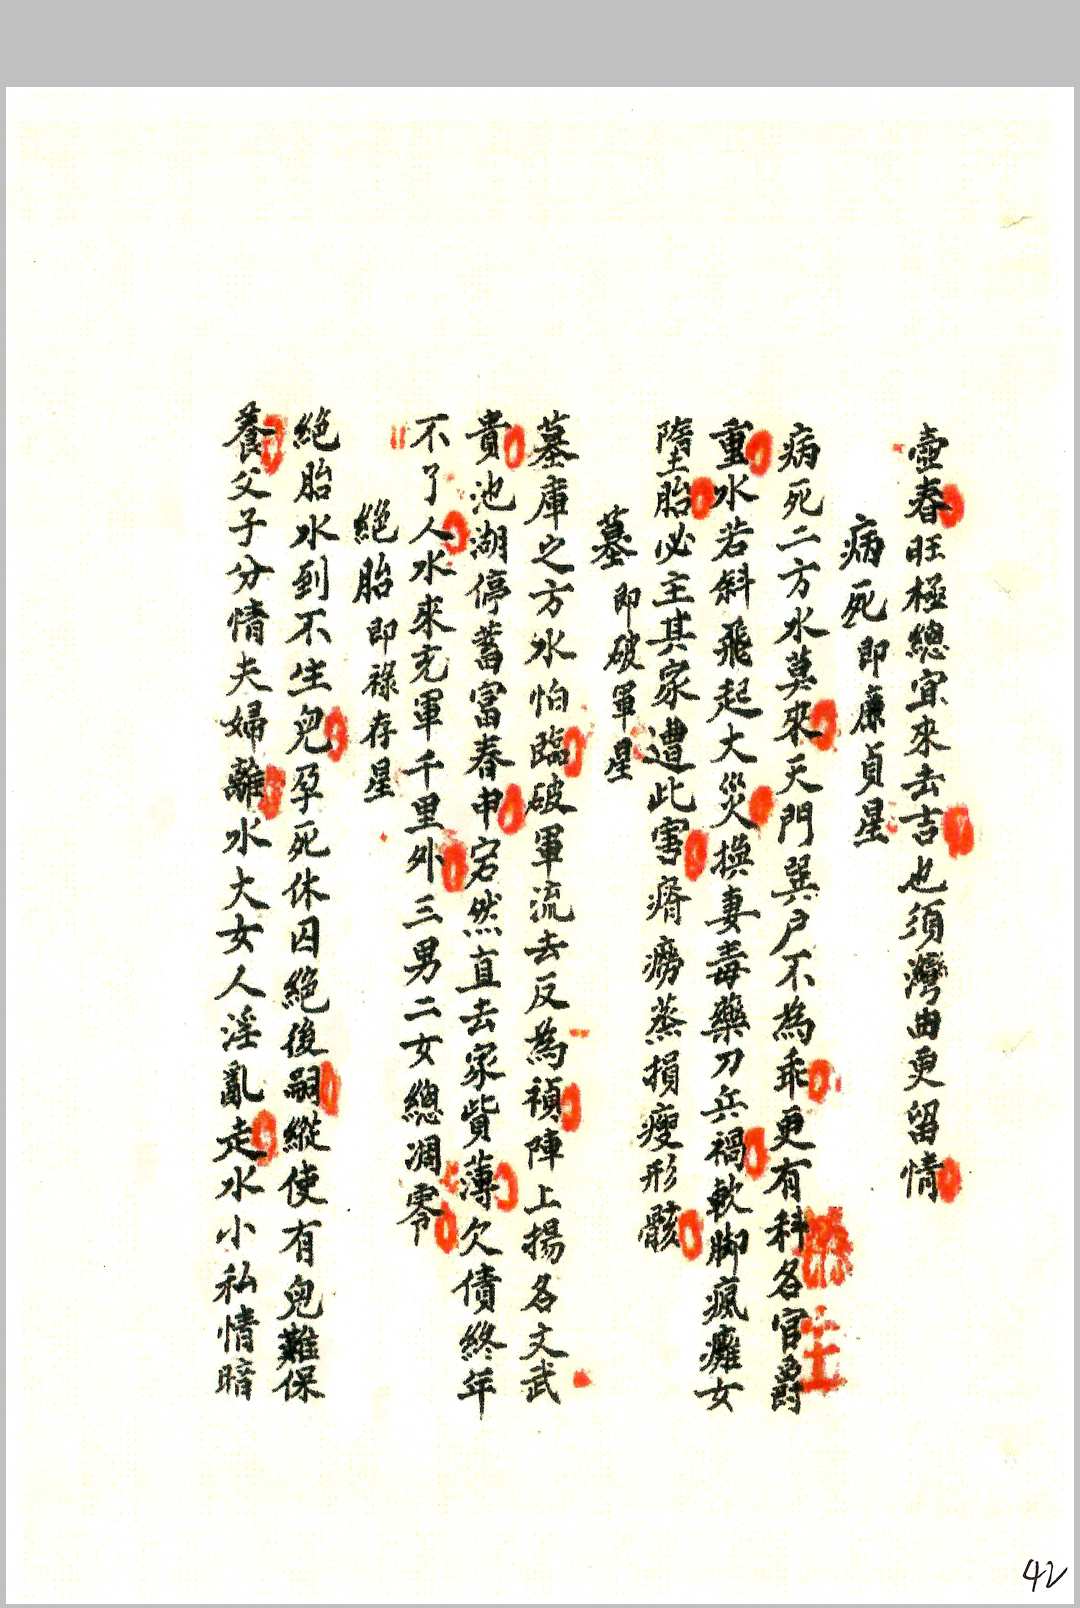 壺春旺極總宜來去吉也須灣曲更留情
病死即廉貞星
病死二方水莫來天門巽戶不為乖更有科名官爵
重水若斜飛起大災換妻毒藥刀兵禍軟脚瘋癱女
墮胎必主其家遭此害癆蒸損瘦形骸
墓即破軍星
墓庫之方水怕臨破軍流去反為禎陣上揚名文武
貴池湖停蓄富春申宕然直去家貲薄欠債終年
不了人水來充軍千里外三男二女總凋零
絕胎即祿存星
絕胎水到不生兒孕死休囚絕後嗣縱使有兒難保
養父子分情夫婦離水大女人淫亂走水小私情暗
42